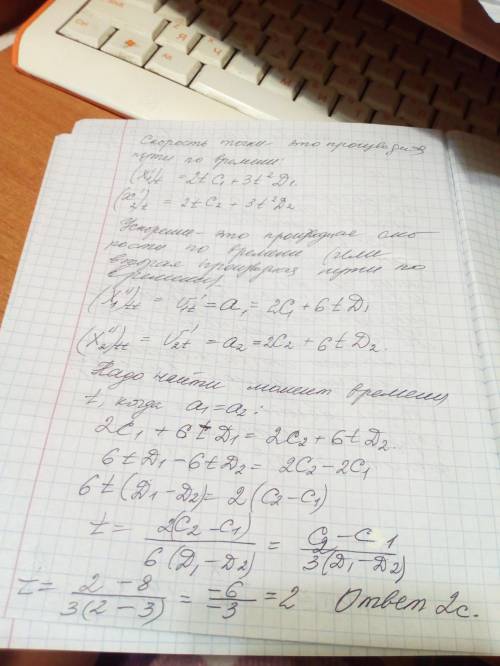 Скорость точки - это производная
пути по времени:
(x₁)'ₜ = 2tC₁ + 3t²D₁
(x₂)'ₜ = 2tC₂ + 3t²D₂
Ускорение - это производная ско
рости по времени (или
вторая производная пути по
времени)
(x₁'')ₜₜ = v₁ₜ' = a₁ = 2C₁ + 6tD₁
(x₂'')ₜₜ = v₂ₜ' = a₂ = 2C₂ + 6tD₂.
Надо найти момент времени
t, когда a₁ = a₂:
2C₁ + 6tD₁ = 2C₂ + 6tD₂
6tD₁ - 6tD₂ = 2C₂ - 2C₁
6t(D₁ - D₂) = 2(C₂ - C₁)
t = 2(C₂ - C₁) / 6(D₁ - D₂) = C₂ - C₁ / 3(D₁ - D₂)
t = 2 - 8 / 3(2 - 3) = -6 / -3 = 2 Ответ 2с.